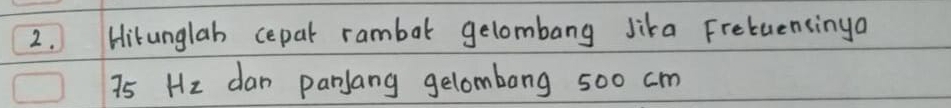 2. Hitunglah cepat rambat gelombang Jika Frekuensinya
75 Hz dan panjang gelombang 500 cm